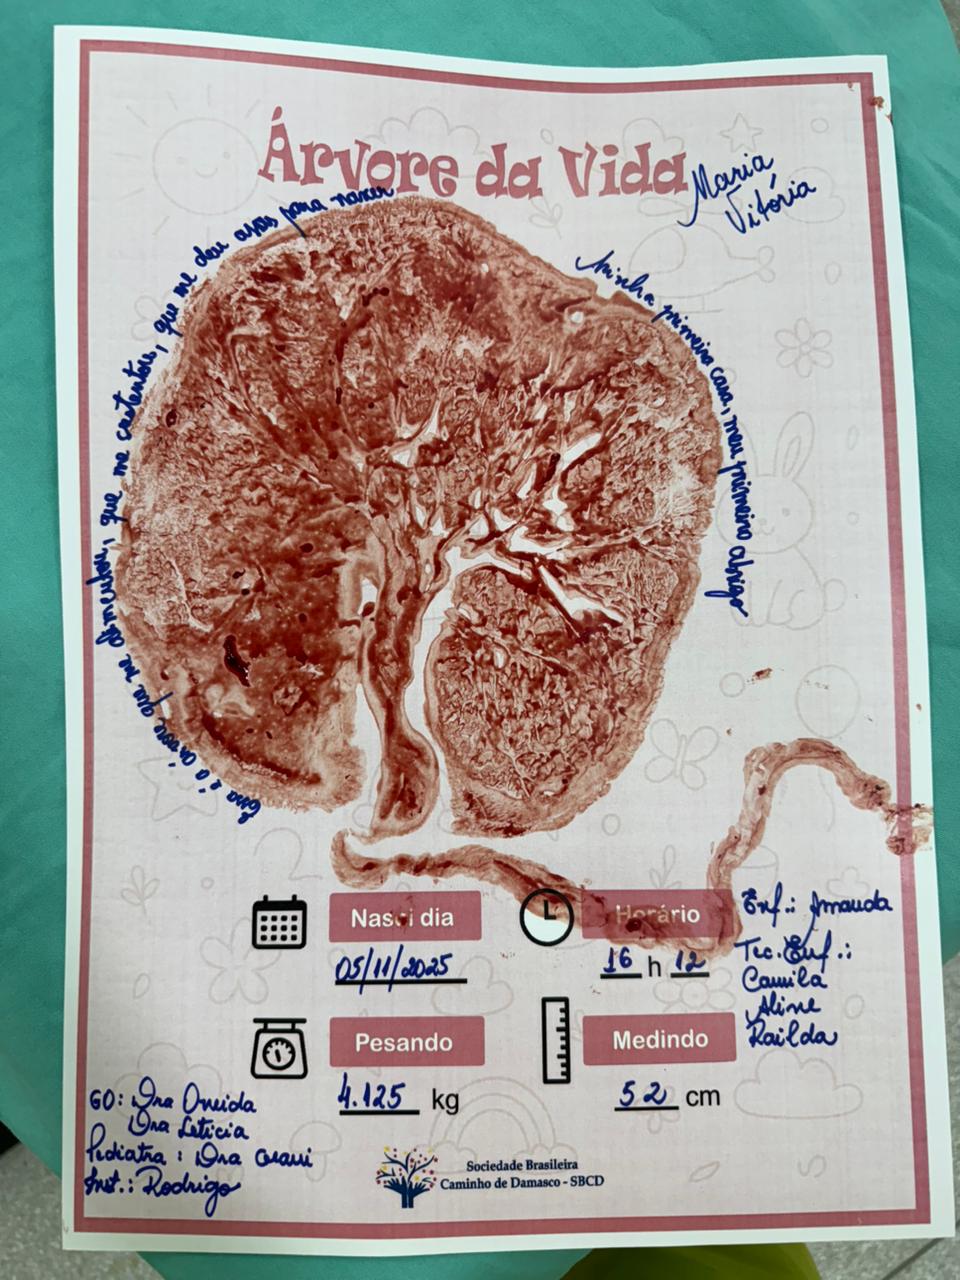 Árvore da Vida
Maria
Vitória
Minha primeira casa, meu primeiro abrigo
Essa é a árvore que me alimentou, que me sustentou, que me deu asas para nascer
Nasci dia
05/11/2025
Horário
16 h 12
Pesando
4.125 kg
Medindo
52 cm
Enf.: Amanda
Tec. Enf.:
Camila
Aline
Railda
GO: Dra Oneida
Dra Leticia
Pediatra: Dra
Inst.: Rodrigo
Sociedade Brasileira
Caminho de Damasco - SBCD